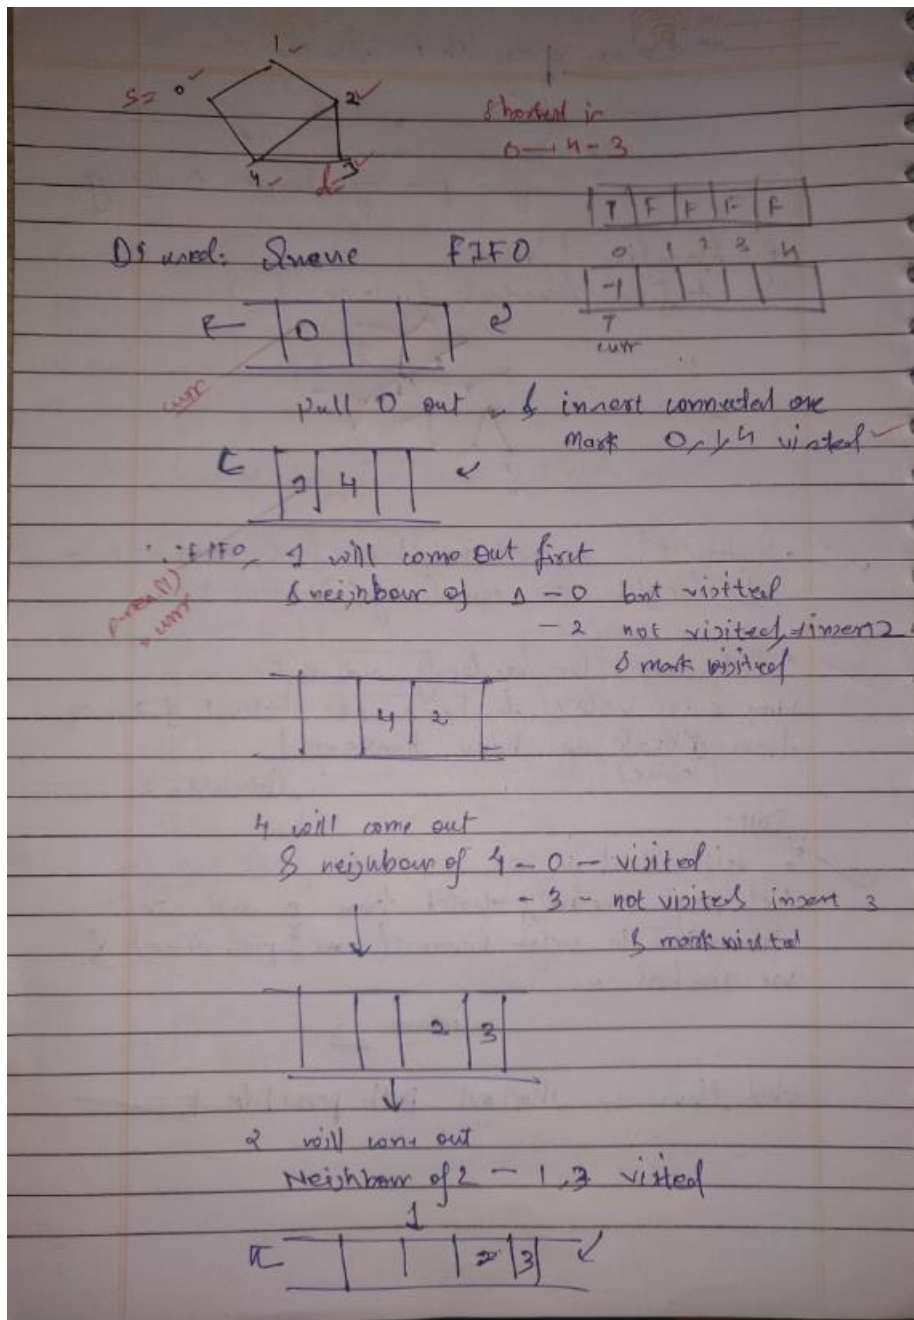 1
S= 0
2
4
d=
3
Shortest is
0 - 4 - 3
T F F F F
0 1 2 3 4
-1
↑
curr
DS used: Queue FIFO
0
curr
pull 0 out & insert connected one
mark 0, 1, 4 visited
1 4
∵ FIFO, 1 will come out first
& neighbour of 1 - 0 but visited
- 2 not visited, insert 2
& mark visited
curr
4 2
4 will come out
& neighbour of 4 - 0 - visited
- 3 - not visited insert 3
& mark visited
2 3
2 will come out
Neighbour of 2 - 1, 3 visited
2 3